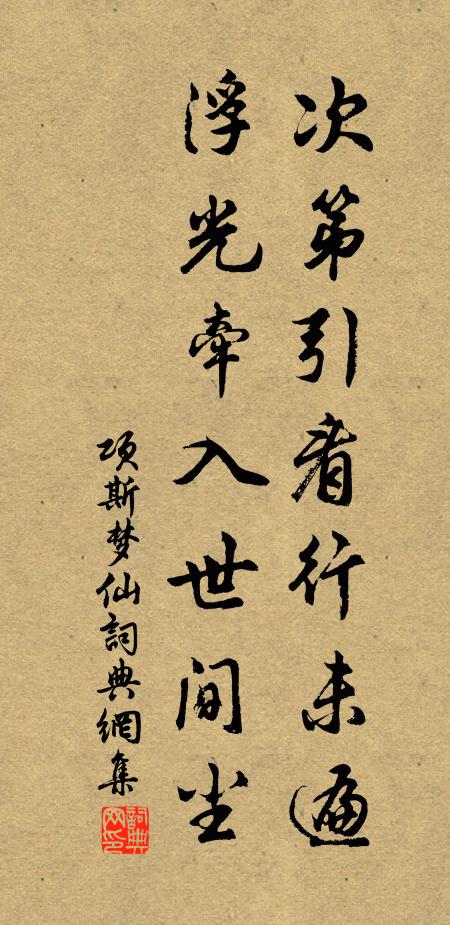 次第引看行未遍
浮光牵入世间尘
项斯梦仙詞典網集
詞典网印